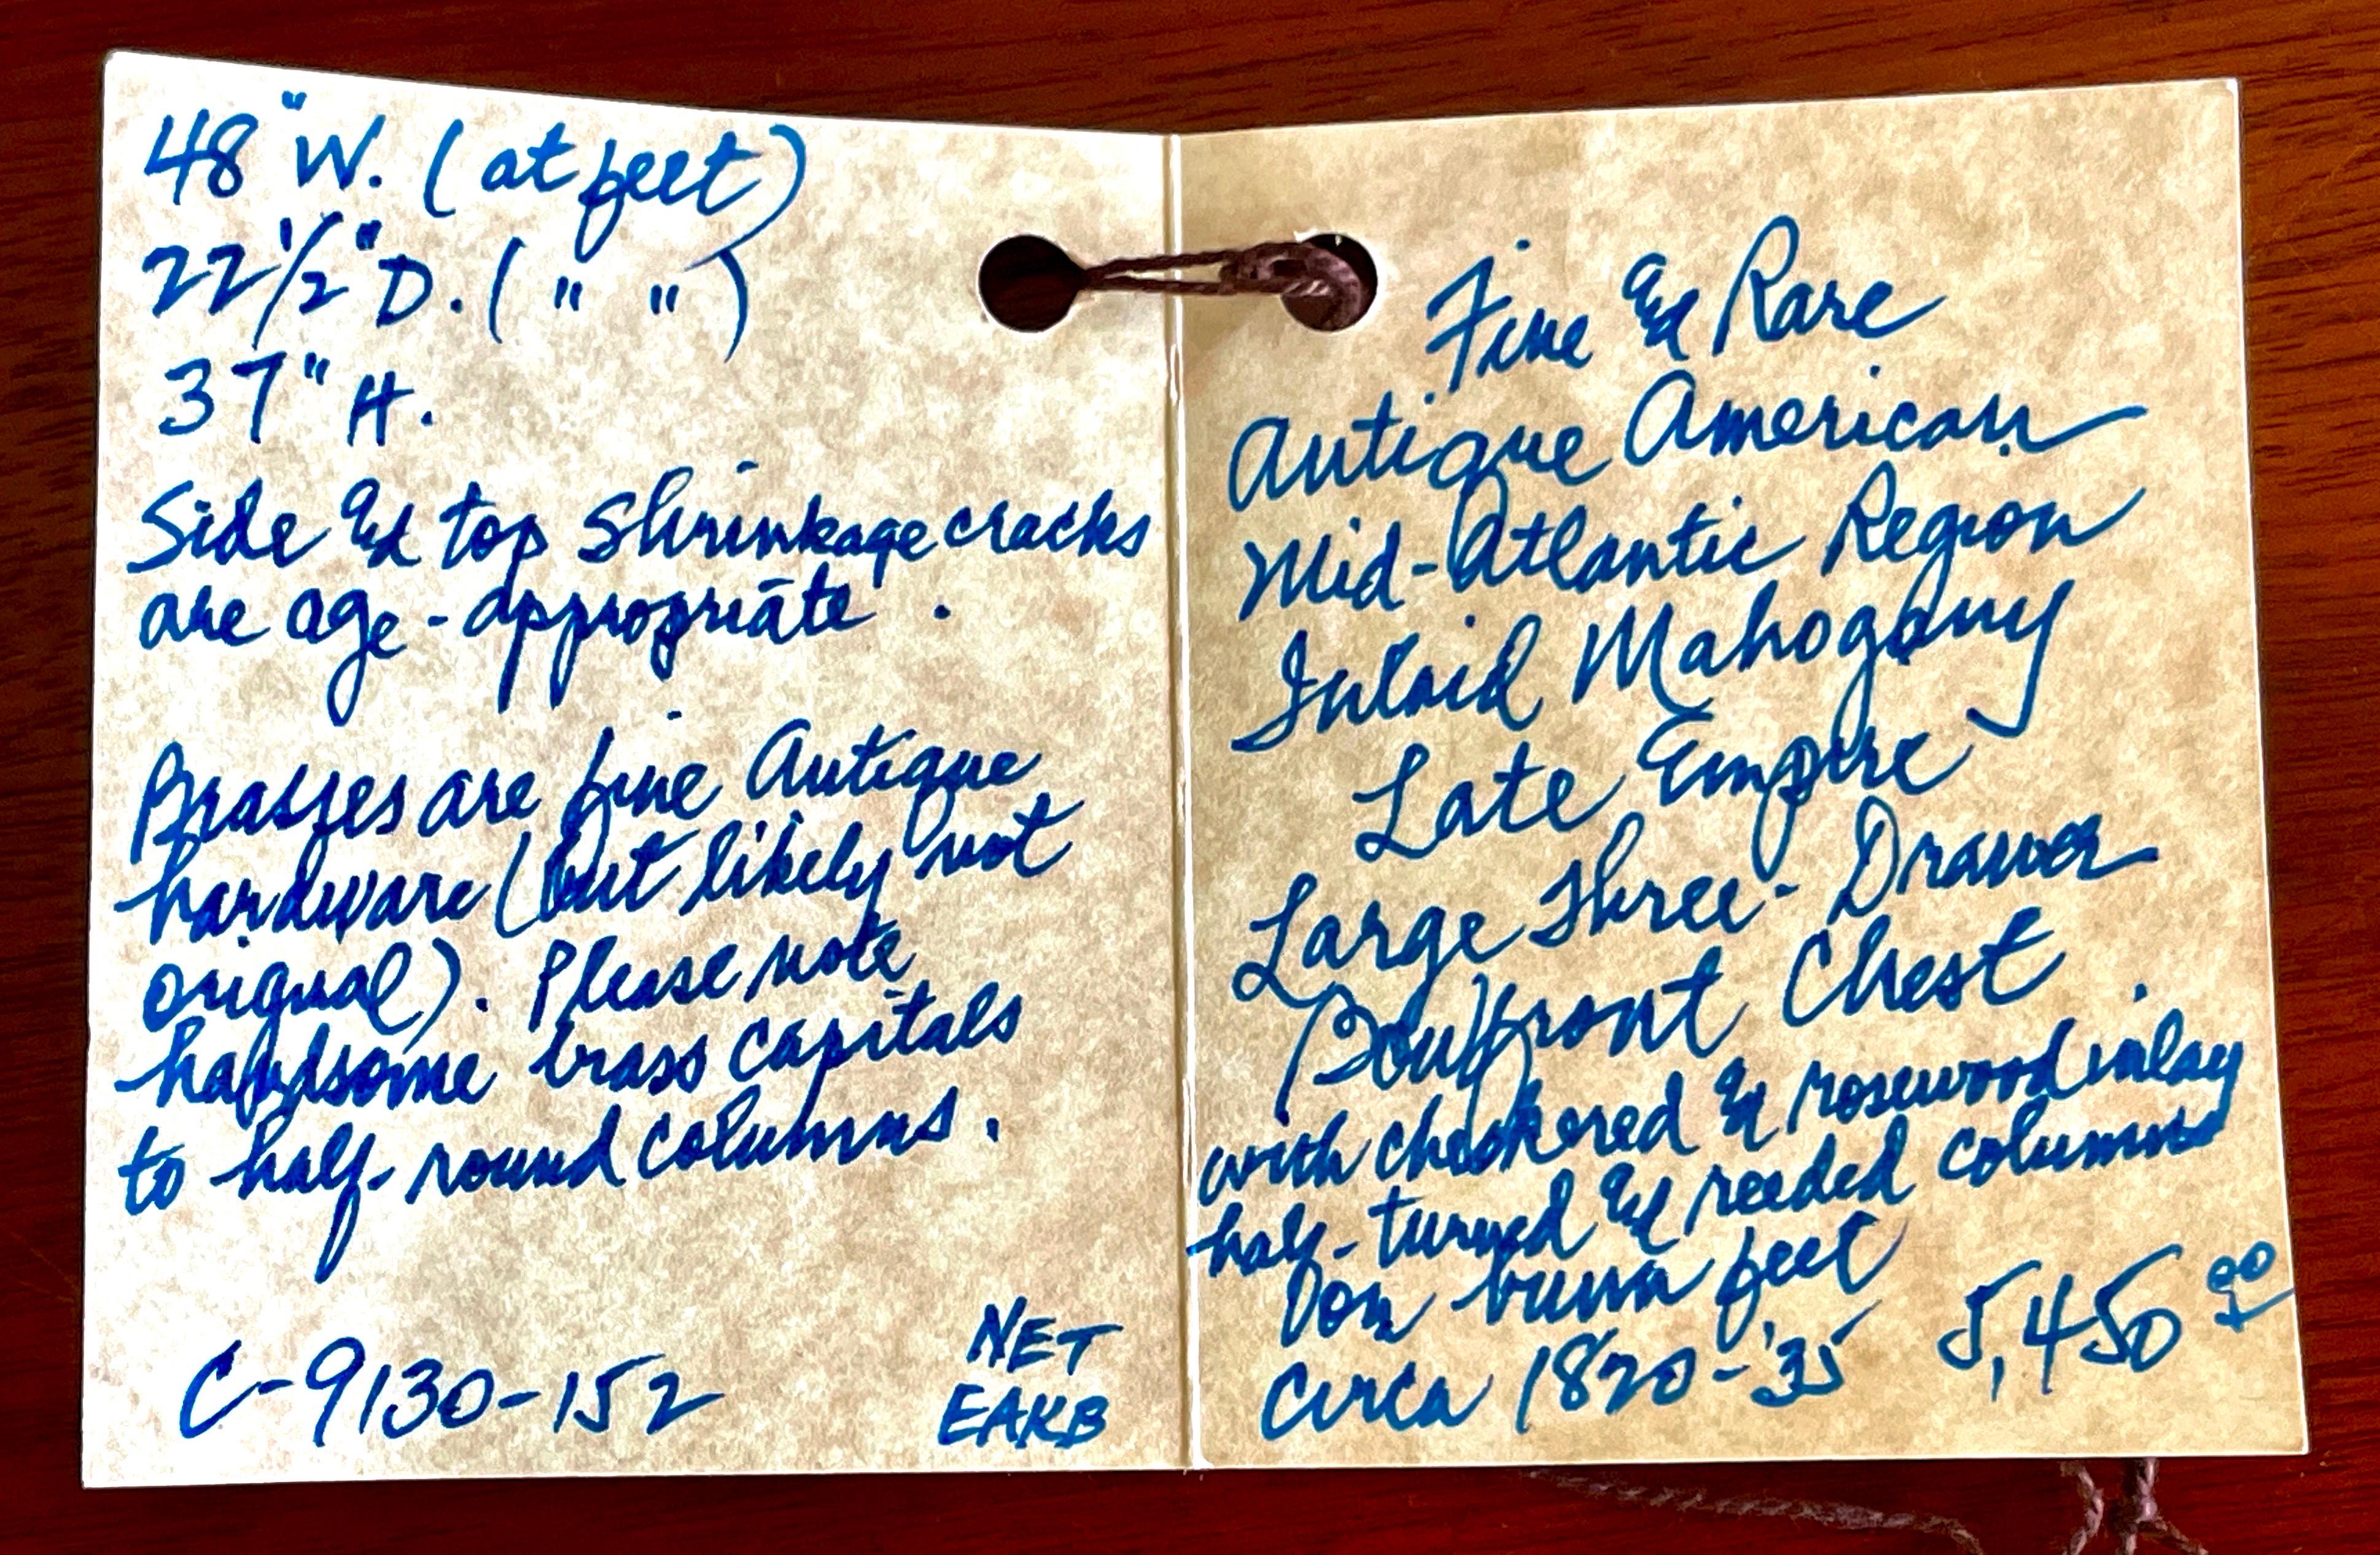 48" W. (at feet)
22 1/2" D. ( " " )
37" H.
Side & top shrinkage cracks
are age-appropriate.
Brasses are fine Antique
hardware (but likely not
original). Please note
handsome brass capitals
to half-round columns.
C-9130-152
NET
EAKB
Fine & Rare
Antique American
Mid-Atlantic Region
Inlaid Mahogany
Late Empire
Large Three-Drawer
Bowfront Chest
with checkered & rosewood inlay
half-turned & reeded columns
on feet
Circa 1820-'35 5,450.00